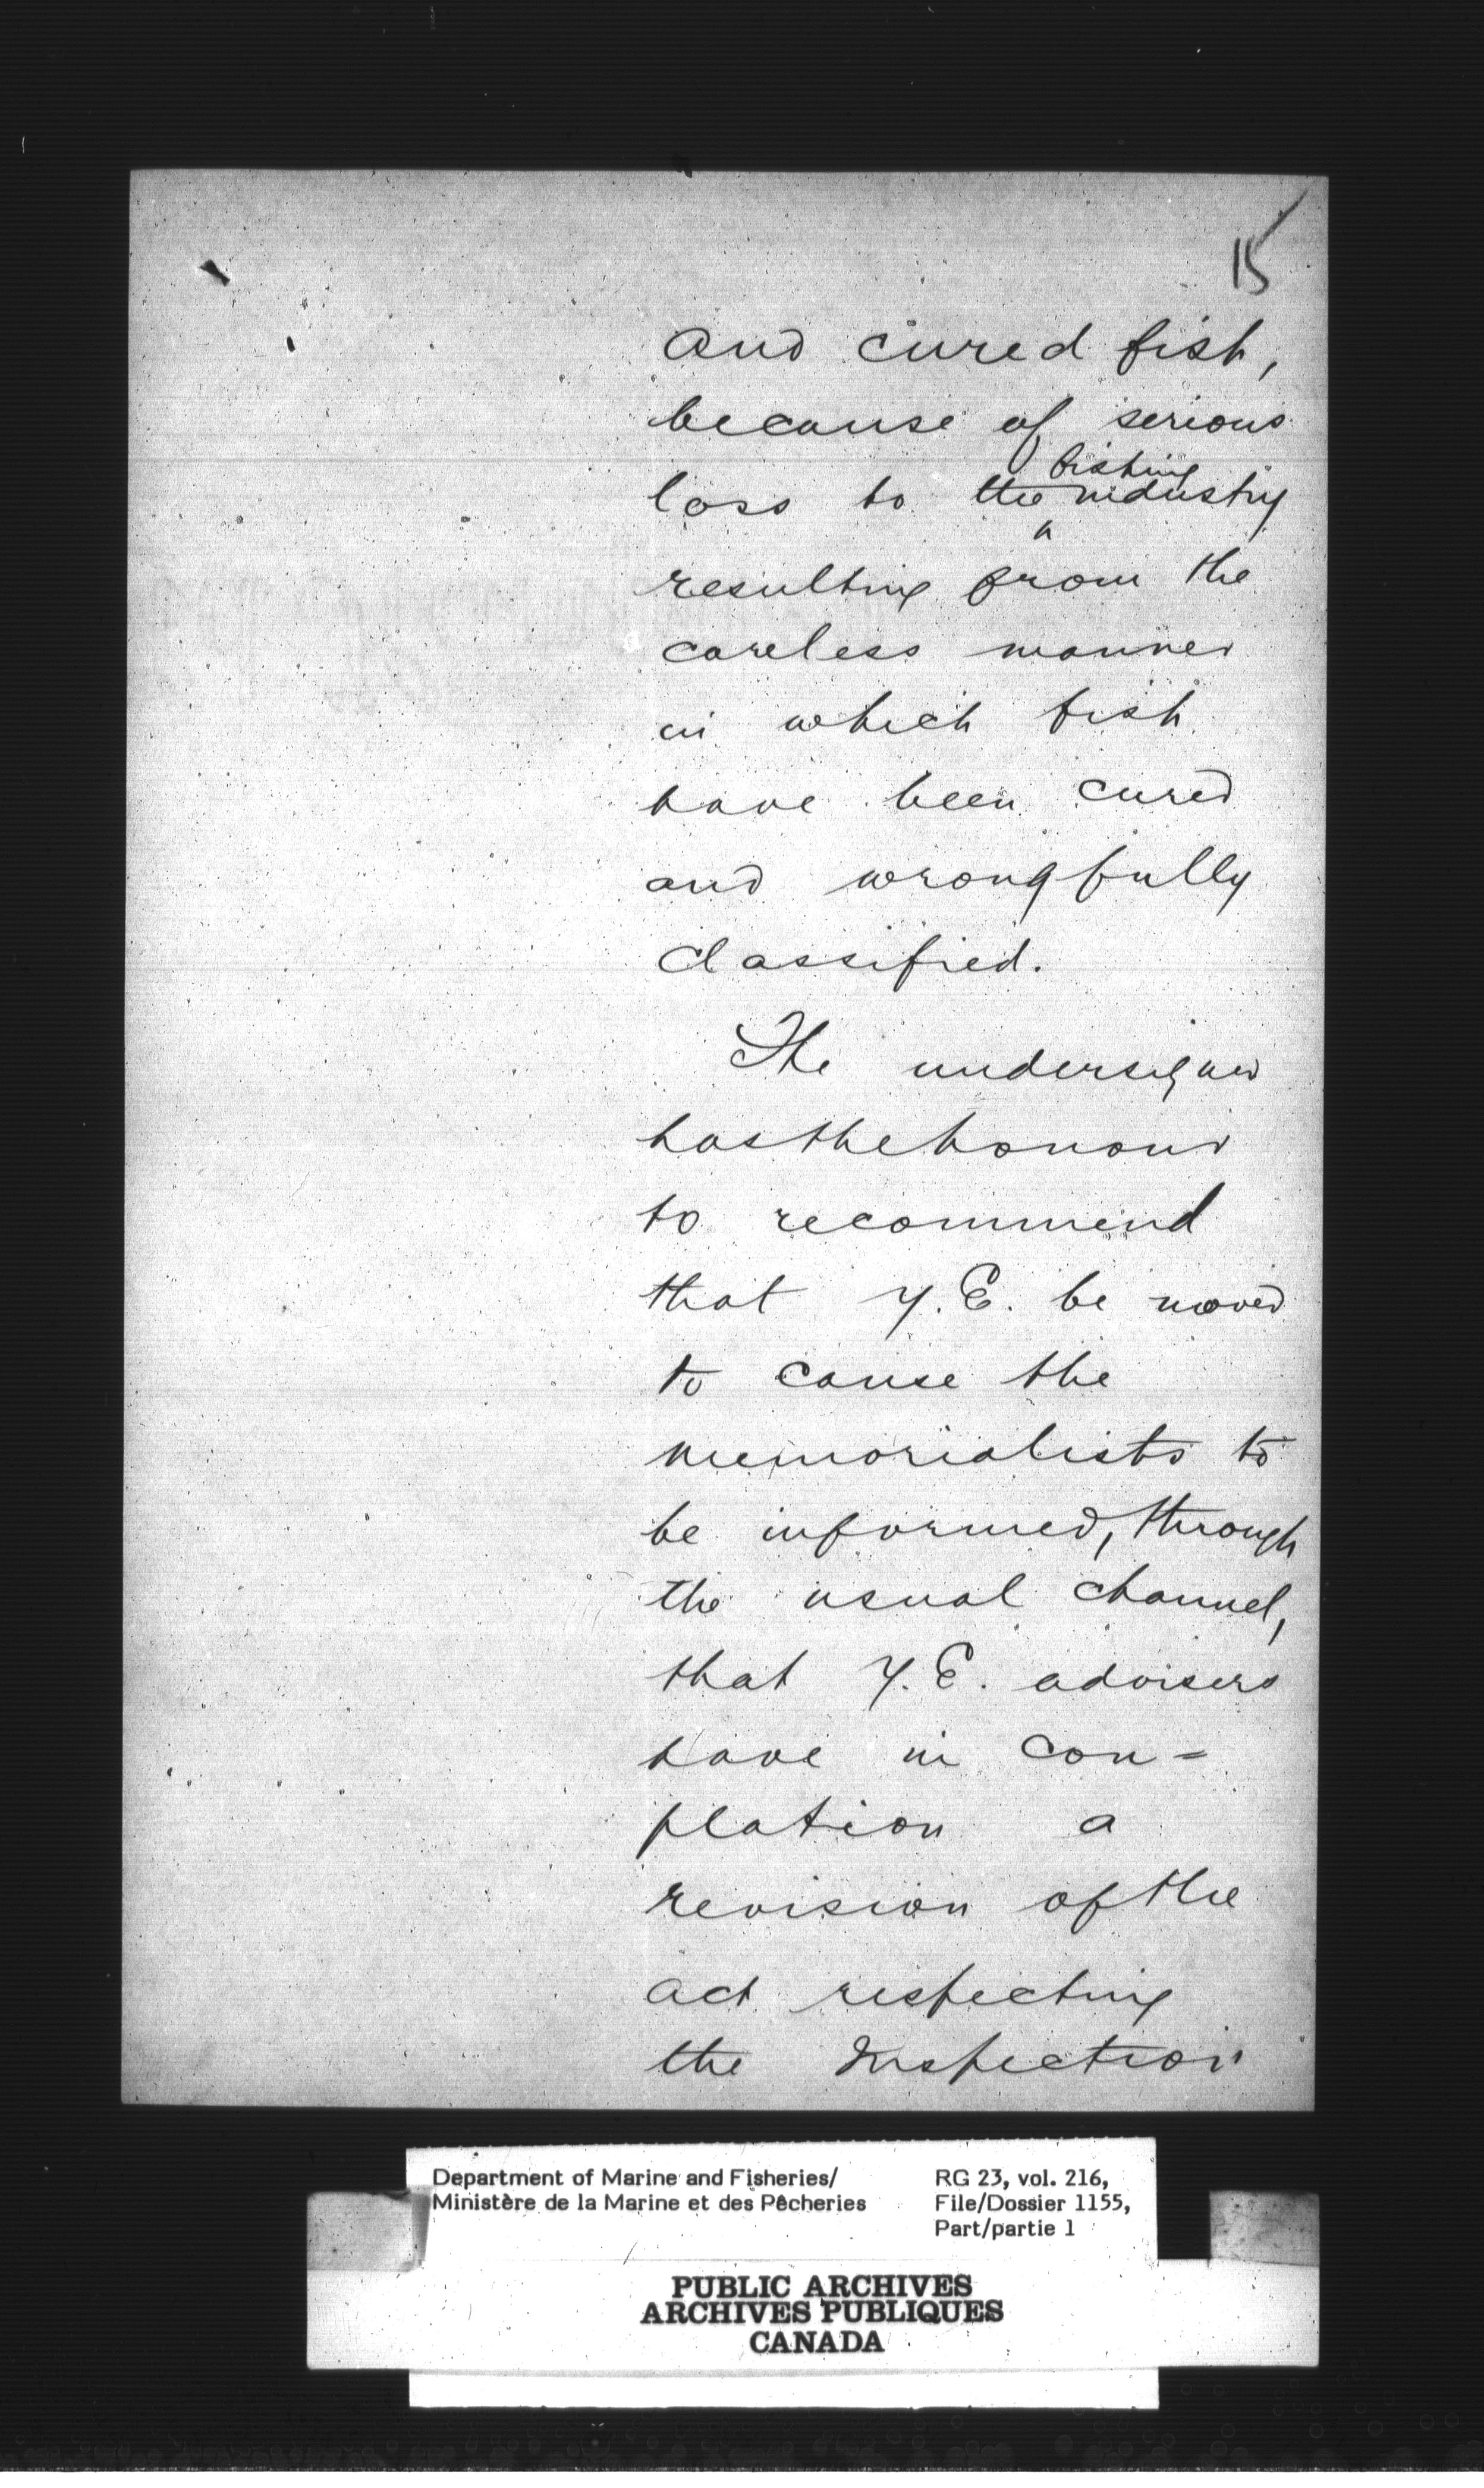 15
and cured fish,
because of serious
fishing
loss to the industry
resulting from the
careless manner
in which fish
have been cured
and wrongfully
classified.
The undersigned
has the honour
to recommend
that Y.E. be moved
to cause the
memorialists to
be informed, through
the usual channel,
that Y.E. advisers
have in con=
plation a
revision of the
act respecting
the Inspection
Department of Marine and Fisheries/
Ministère de la Marine et des Pêcheries
RG 23, vol. 216,
File/Dossier 1155,
Part/partie 1
PUBLIC ARCHIVES
ARCHIVES PUBLIQUES
CANADA